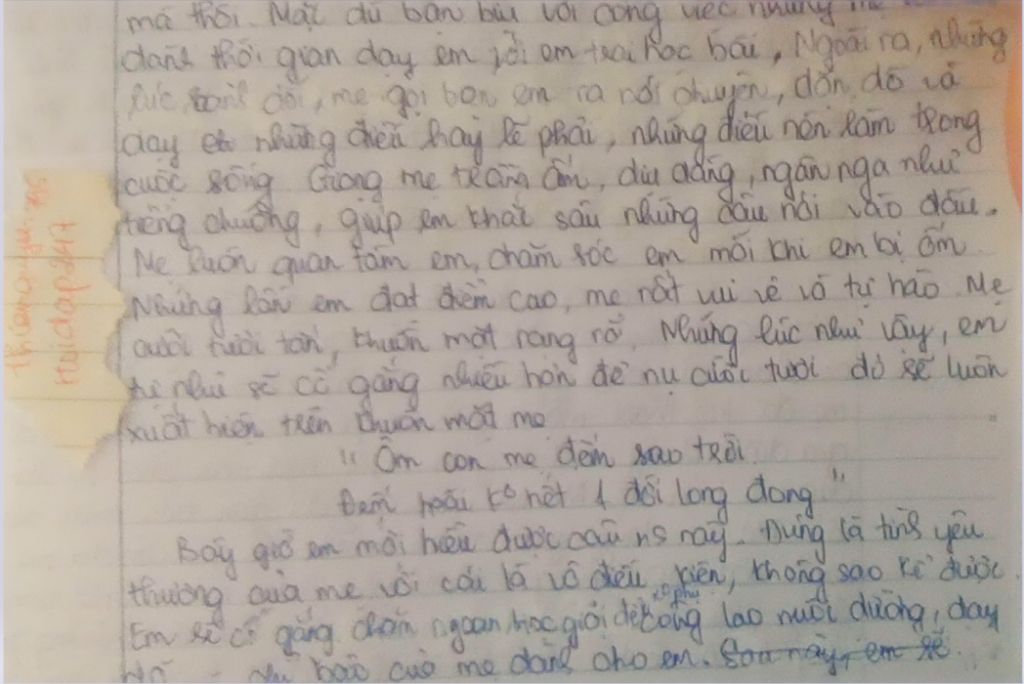 mà thôi. Mặc dù bận bịu với công việc nhưng mẹ
dành thời gian dạy em với em trai học bài. Ngoài ra, những
lúc rảnh rỗi, mẹ gọi bọn em ra nói chuyện, dặn dò và
dạy những điều hay lẽ phải, những điều nên làm trong
cuộc sống Giọng mẹ trầm ấm, dịu dàng, ngân nga như
tiếng chuông, giúp em khắc sâu những câu nói vào đầu.
Mẹ luôn quan tâm em, chăm sóc em mỗi khi em bị ốm
Những lần em đạt điểm cao, mẹ rất vui vẻ và tự hào. Mẹ
cười tươi tắn, khuôn mặt rạng rỡ. Những lúc như vậy, em
tự nhủ sẽ cố gắng nhiều hơn để nụ cười tươi đó sẽ luôn
xuất hiện trên khuôn mặt mẹ
" Ôm con mẹ đếm sao trời
Đếm hoài ko hết 1 đời long đong "
Bây giờ em mới hiểu được câu ns này. Đúng là tình yêu
thương của mẹ với con là vô điều kiện, không sao kể được.
Em sẽ cố gắng chăm ngoan học giỏi để ko phụ công lao nuôi dưỡng, dạy
bảo của mẹ dành cho em. Sau này, em sẽ
hoidap247